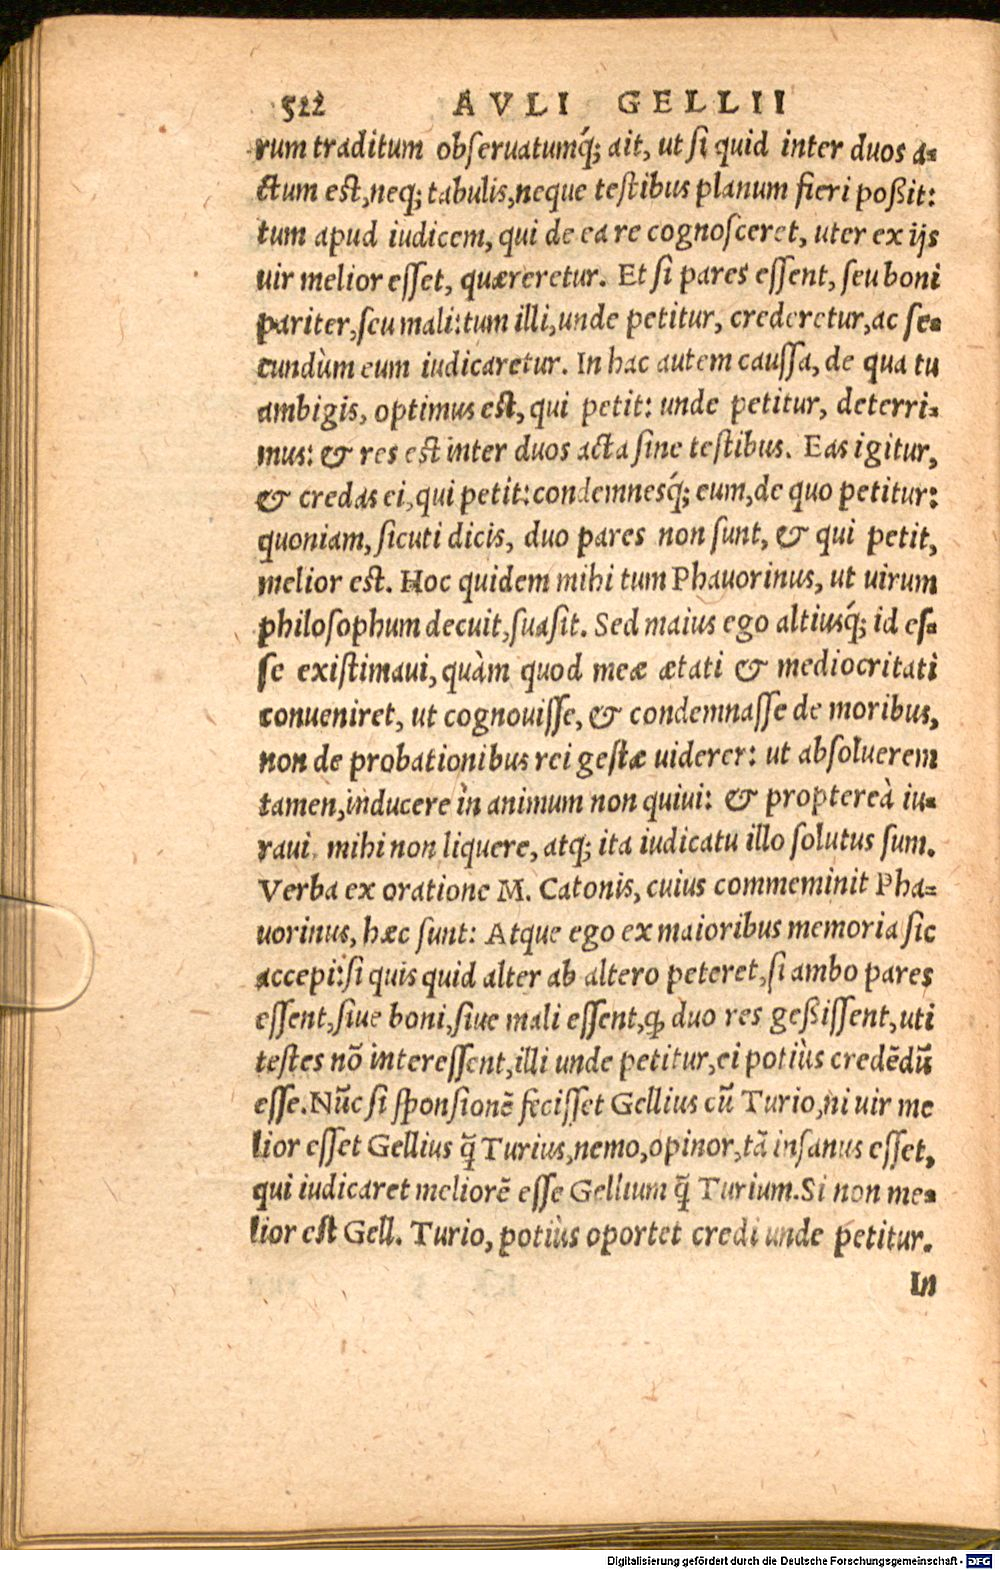 522 AVLI GELLII
rum traditum obſeruatumq́; ait, ut ſi quid inter duos a-
ctum est, neq; tabulis, neque teſtibus planum fieri poßit:
tum apud iudicem, qui de ea re cognoſceret, uter ex ijs
uir melior eſſet, quæreretur. Et ſi pares eſſent, ſeu boni
pariter, ſeu mali: tum illi, unde petitur, crederetur, ac ſe-
cundùm eum iudicaretur. In hac autem cauſſa, de qua tu
ambigis, optimus est, qui petit: unde petitur, deterri-
mus: & res est inter duos acta ſine teſtibus. Eas igitur,
& credas ei, qui petit: condemnesq́; eum, de quo petitur:
quoniam, ſicuti dicis, duo pares non ſunt, & qui petit,
melior est. Hoc quidem mihi tum Phauorinus, ut uirum
philoſophum decuit, ſuaſit. Sed maius ego altiusq́; id eſ-
ſe exiſtimaui, quàm quod meæ ætati & mediocritati
conueniret, ut cognouiſſe, & condemnaſſe de moribus,
non de probationibus rei geſtæ uiderer: ut abſoluerem
tamen, inducere in animum non quiui: & proptereà iu-
raui mihi non liquere, atq; ita iudicatu illo ſolutus ſum.
Verba ex oratione M. Catonis, cuius commeminit Pha-
uorinus, hæc ſunt: Atque ego ex maioribus memoria ſic
accepi: ſi quis quid alter ab altero peteret, ſi ambo pares
eſſent, ſiue boni, ſiue mali eſſent, ꝙ duo res geßiſſent, uti
teſtes nõ intereſſent, illi unde petitur, ei potiùs credẽdũ
eſſe. Nũc ſi ſponſionẽ feciſſet Gellius cũ Turio, ni uir me
lior eſſet Gellius q̃ Turius, nemo, opinor, tã inſanus eſſet,
qui iudicaret meliorẽ eſſe Gellium q̃ Turium. Si non me-
lior est Gell. Turio, potiùs oportet credi unde petitur.
In
Digitalisierung gefördert durch die Deutsche Forschungsgemeinschaft - DFG